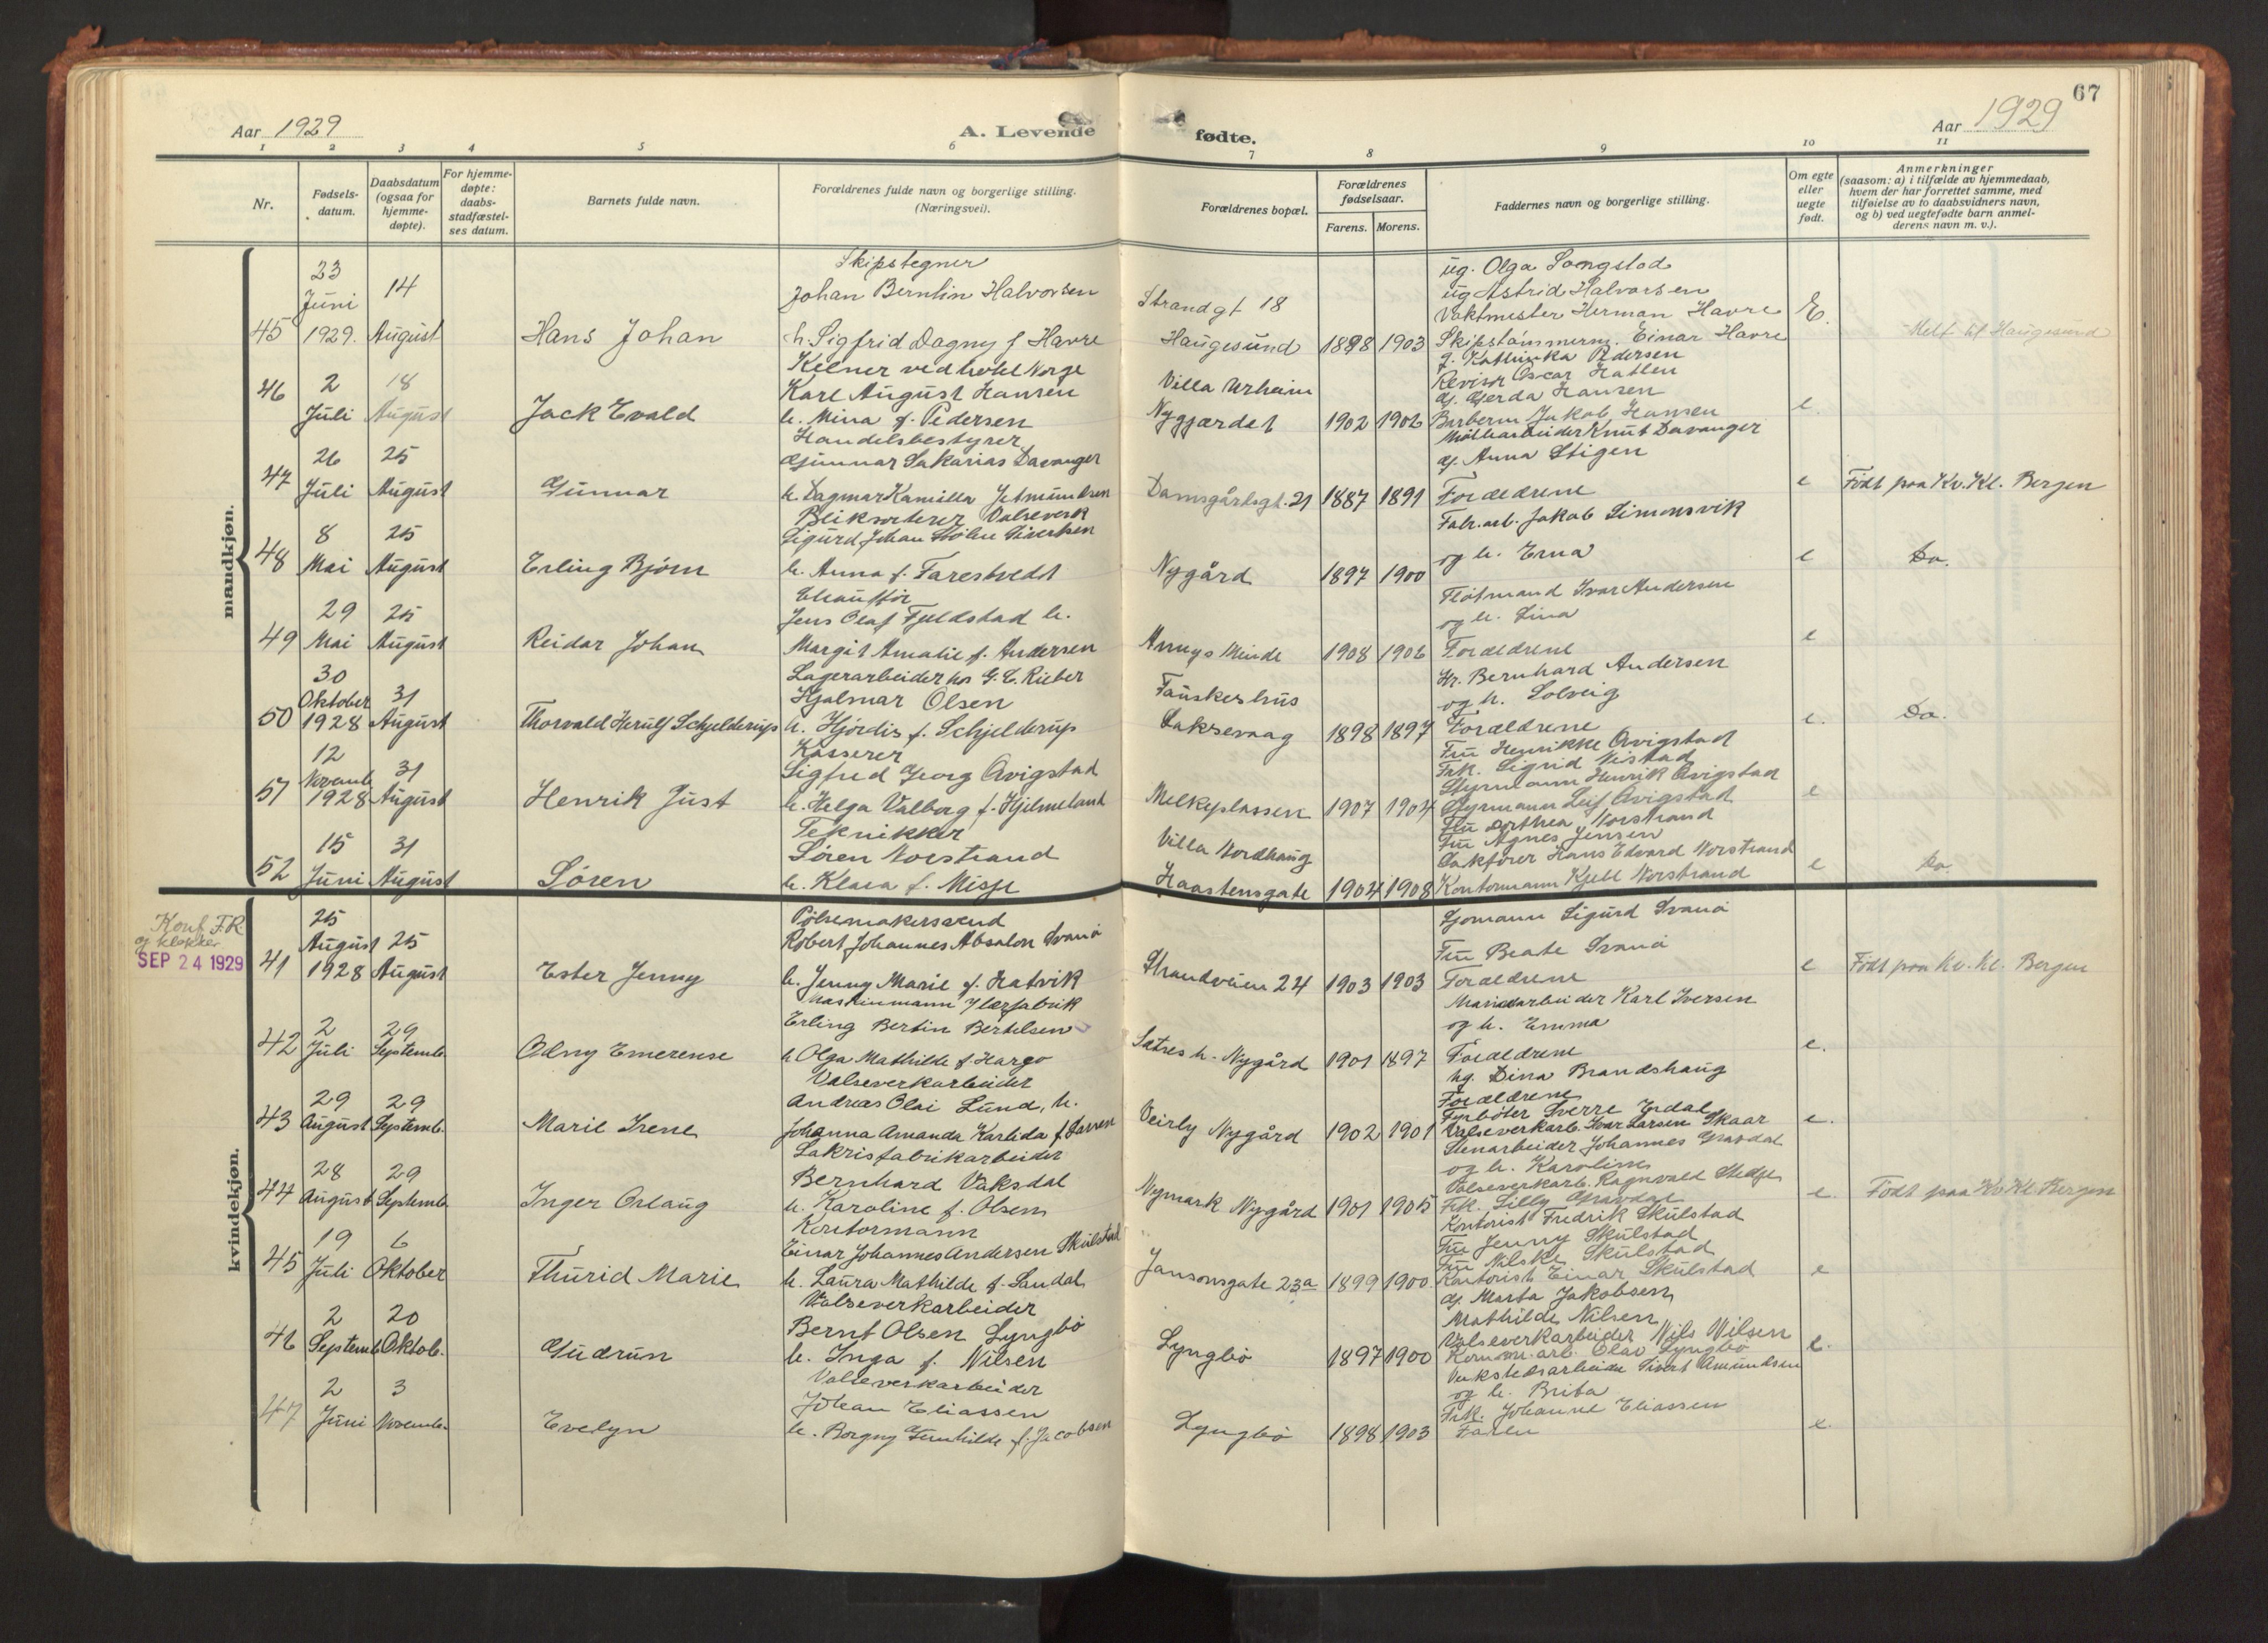 67
Aar 1929
A. Levende
fødte.
Aar 1929
1 2 3 4 5 6 7 8 9 10 11
Nr.
Fødsels-
datum.
Daabsdatum
(ogsaa for
hjemme-
døpte).
For hjemme-
døpte:
daabs-
stadfæstel-
ses datum.
Barnets fulde navn.
Forældrenes fulde navn og borgerlige stilling.
(Næringsvei).
Forældrenes bopæl.
Forældrenes
fødselsaar.
Farens. Morens.
Faddernes navn og borgerlige stilling.
Om egte
eller
uegte
født.
Anmerkninger
(saasom: a) i tilfælde av hjemmedaab,
hvem der har forrettet samme, med
tilføielse av to daabsvidners navn,
og b) ved uegtefødte barn anmel-
derens navn m. v.).
mandkjøn.
45
23
Juni
1929.
14
August
Hans Johan
Skipstegner
Johan Berntin Halvorsen
h. Sigfrid Dagny f Havre
Strandgt 18
Haugesund
1898 1903
ug. Olga
ug Astrid Halvorsen
Vaktmester Herman Havre
Skipstømmerm. Einar Havre
E.
Melt til Haugesund
46
2
Juli
18
August
Jack Evald
Kelner ved hotel Norge
Karl August Hansen
h. Mina f. Pedersen
Villa Urheim
Nygjærdet
1902 1906
g. Kathinka Pedersen
Revisor Oscar Hatlen
g. Gerda Hansen
Barberm Jakob Hansen
e.
47
26
Juli
25
August
Gunnar
Handelsbestyrer
Gunnar Sakarias Davanger
h. Dagmar Kamilla Jetmundsen
Damsgårdsgt. 21
1887 1891
Knut Davanger
g. Anna Stigen
Forældrene
e
Født paa Kv. Kl. Bergen
48
8
Mai
25
August
Erling Bjørn
Bliksorterer Valseverk
Sigurd Johan Sivertsen
h. Anna f. Farestvedt
Nygård
1897 1900
Fabr. arb. Jakob Simonsvik
og h. Erna
e
Do.
49
29
Mai
25
August
Reidar Johan
Chauffør
Jens Olaf Fjeldstad h.
Margit Amalie f. Andersen
Annys Minde
1908 1906
Fløtmand Ivar Andersen
og h. Lina
Forældrene
e
50
30
Oktober
1928
31
August
Thorvald Herulf Schjelderup
Lagerarbeider hos G. C. Rieber
Hjalmar Olsen
h. Hjørdis f. Schjelderup
Fauskerhus
Laksevaag
1898 1897
Hr. Bernhard Andersen
og h. Solveig
Forældrene
e.
Do.
51
12
Novemb
1928
31
August
Henrik Just
Kasserer
Sigfred Georg Avigstad
h. Helga Valborg f. Hjelmeland
Melkeplassen
1907 1904
Fru Henrikke Avigstad
Frk. Sigrid
Styrmann Henrik Avigstad
Styrmann Leif Avigstad
e
52
15
Juni
31
August
Søren
Teknikker
Søren Norstrand
h. Klara f. Misje
Villa Nordhaug
Haastensgate
1904 1908
Fru Dorthea Norstrand
Fru Agnes Jensen
Faktorer Hans Edvard Norstrand
Kontormann Kjell Norstrand
e
Do.
kvindekjøn.
Konf. F.R.
og klokker
SEP 24 1929
41
25
August
1928
25
August
Ester Jenny
Pølsemakersvend
Robert Johannes Absalon Svanø
h. Jenny Marie f. Hatvik
Strandveien 24
1903 1903
Sjømann Sigurd Svanø
Fru Beate Svanø
Forældrene
e
Født paa Kv. Kl. Bergen
42
2
Juli
29
Septemb.
Odny Emerense
Maskinmann
Erling Bertin Bertelsen
h Olga Mathilde f Hargo
Sætres h. Nygård
1901 1897
Karl Iversen
og h. Emma
Forældrene
e.
43
29
August
29
Septemb.
Marie Irene
Valseverkarbeider
Andreas Olai Lund, h.
Johanna Amanda Karlida f. Larsen
Veirly Nygård
1902 1901
ug. Dina Brandshaug
Forældrene
Fyrbøter Sverre Erdal
Valseverkarb. Ivar Larsen Skaar
e.
44
28
August
29
Septemb.
Inger Oslaug
Lakrisfabrikarbeider
Bernhard Vaksdal
h. Karoline f. Olsen
Nymark Nygård
1901 1905
Stenarbeider Johannes Gravdal
og h. Karoline
Valseverkarb. Ragnvald Stedje
Frk. Lilly Gravdal
e.
Født paa Kv. Kl. Bergen
45
19
Juli
6
Oktober
Thurid Marie
Kontormann
Einar Johannes Andersen Skulstad
h. Laura Mathilde f. Sandal
Jansonsgate 23a
1899 1900.
Kontorist Fredrik Skulstad
Fru Jenny Skulstad
Fru Skulstad
Kontorist Einar Skulstad
e
46
2
Septemb
20
Oktob.
Gudrun
Valseverkarbeider
Bernt Olsen Lyngbø
h. Inga f. Nilsen
Lyngbø
1897 1900
g. Marta Jakobsen
Mathilde Nilsen
Valseverkarbeider Nils Nilsen
Komm. arb. Olav Lyngbø
e.
47
2
Juni
3
Novemb.
Evelyn
Valseverkarbeider
Johan Eliassen
h. Borgny Gunhilde f. Jacobsen
Lyngbø
1898 1903
Verkstedsarbeider Sivert Amundsen
og h. Brita
Frk. Johanne Eliassen
Faren
e.